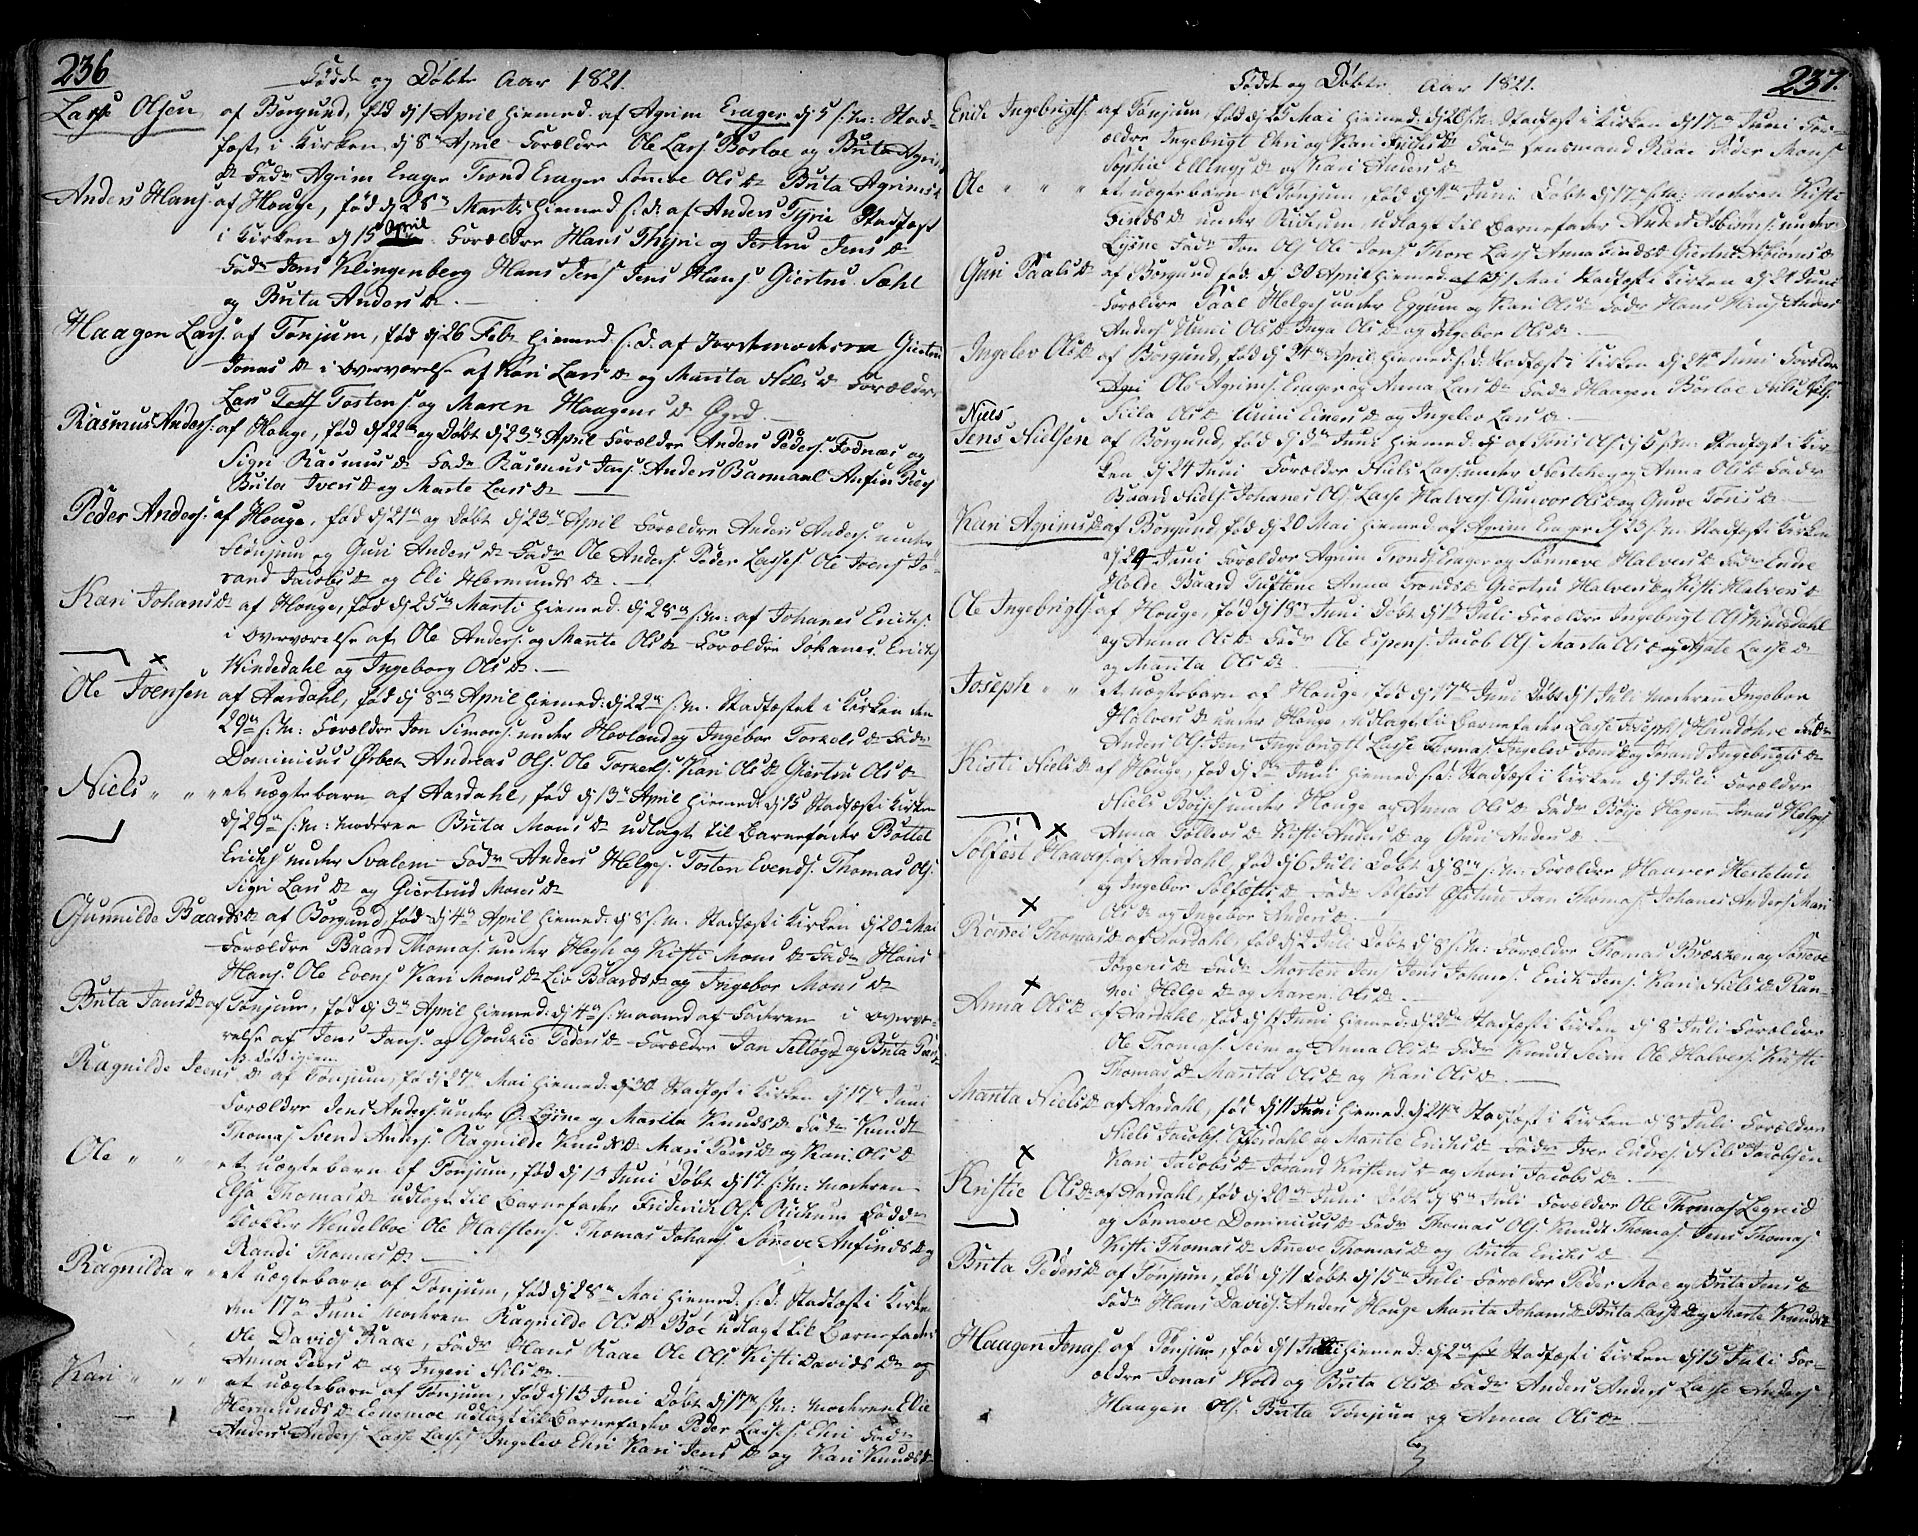 236
Fødde og Døbte Aar 1821.
Lasse Olsen af Borgund, fød dj 1 April hjemed. af Agrim Erager dj 5 s: M: Stad-
fæst i Kirken dj 8de April Forældre Ole Lars. Borloe og Brita Agrims
D Fadr Agrim Erager Trond Erager Sønneve Ols D Brita Agrims D
Anders Hans. af Houge, fød dj 28de Marti hjemed s. d. af Anders Tyrie Stadfæst
i Kirken dj 15 April. Forældre Hans Thyrie og Jertru Jens D
Fadr Jens Klingenberg Hans Jens. Jens Hans. Giertru Sæhl
og Brita Anders D.
Haagen Lars. af Tønjum, fød dj 26 Feb. hjemed s. d. af Jordemoderen Giertru
Jonas D i overværelse af Kari Lars D og Marita Nils D Forældre
Lars Tostens. og Maren Haagens D Øyrd
Rasmus Anders. af Houge, fød dj 22de og Døbt dj 23de April Forældre Anders Peders. Fodnæs og
Sigri Rasmus D Fadr Rasmus Jens. Anders Barmaal Anfin Peers.
Brita Ivers D og Marte Lars D
Peder Anders. af Houge, fød dj 21de og Døbt dj 23de April Forældre Anders Anders. under
Stønjum og Guri Anders D Fadr Ole Anders. Peder Lasses. Ole Joens. Jo-
rand Jacobs D og Eli Hermunds D.
Kari Johans D af Houge, fød dj 25de Marti hjemed. dj 28de s: M: af Johanes Erichs.
i overværelse af Ole Anders. og Marite Ols D Forældre Johanes Erichs.
Windedahl og Ingeborg Ols D.
Ole Joensen af Aardahl, fød dj 8de April hjemed: dj 22de s: M. Stadfæstet i Kirken den
29de s: M: Forældre Jon Simons. under Hovland og Ingebor Torkels D Fadr
Dominicus Ørben Andreas Ols. Ole Torkels. Kari Ols D Giertru Ols D
Niels " " et uægtebarn af Aardahl, fød dj 13de April hjemed: dj 15 Stadfæst i Kirken
dj 29de s: M: moderen Brita Mons D udlagt til Barnefader Bottel
Erichs. under Svalem Fadr Anders Helges. Tosten Evends. Thomas Ols.
Sigri Lars D og Giertrud Moses D
Gunnilde Baards D af Borgund, fød dj 4de April hjemed: dj 8 s: M. Stadfæst i Kirken dj 20de Mai
Forældre Baard Thomas. under Hegle og Kisti Mons D Fadr Hans
Hans. Ole Evens. Kari Mons D Liv Baards D og Ingebor Mons D
Brita Jans D af Tønjum, fød dj 3de April hjemed: dj 4de s: maaned af Faderen i overvæ-
relse af Jens Jans. og Gourie Peders D Forældre Jan Seltøyn og Brita Peers D
NB. død igien.
Ragnilde Jens D af Tønjum, fød dj 27de Mai hjemed: dj 30 Stadfæst i Kirken dj 17de Juni
Forældre Jens Anders. under Ø. Lysne og Marita Knuds D Fadr Knudt
Thomas. Svend Anders. Ragnilde Knuds D Mari Peers D og Kari Ols D
Ole " " et uægtebarn af Tønjum, fød dj 1de Juni Døbt dj 17 s: M: moderen
Elsa Thomas D udlagt til Barnefader Friderich Ols. Fadr
Klokker Wendelboe Ole Halstens. Thomas Johans. Søneve Anfinds D og
Randi Thomas D
Ragnilda " " et uægtebarn af Tønjum, fød dj 28de Mai hjemed. s. d. Stadfæst i Kirken
den 17de Juni moderen Ragnilde Ols D Bøe udlagt til Barnefader
Ole Davids. Raae, Fadr Hans Raae Ole Ols. Kisti Davids D og
Anna Peers D og Ingeri Nils D
Kari " " et uægtebarn af Tønjum, fød dj 13 Juni Døbt dj 17de s: M: moderen Elie
Hermunds D udlagt til Barnefader Peder Lasses. Ehri Fadr
Anders Anders. Lasse Lasses. Ingelev Ehri Kari Jens D og Kari Knuds D
237.
Fødde og Døbte Aar 1821.
Erik Ingebrigts. af Tønjum, fød dj 25 Mai hjemed: dj 26 s: M: Stadfæst i Kirken dj 17de Juni For-
ældre Ingebrigt Ehri og Kari Anders D Fadr Lensmand Raae Peder Mons.
Sophia Ellings D og Kari Anders D
Ole " " " et uægtebarn af Tønjum, fød dj Juni Døbt dj 17de s: M: moderen Kisti
D under udlagt til Barnefader Anders under
Lysne Fadr Jon Ols. Ole Jons. Thore Lars. Anna D Giertru D
Guri Paals D af Borgund fød. dj 30 April hjemed Mai Stadfæst i Kirken dj 24 Juni
Forældre Paal Helges. under Eggum og Kari Ols D Fadr Hans Hans. Anders
Anders. Unni Ols D Inga Ols D og Ingebor Ols D.
Ingelev Ols D af Borgund, fød dj 24de April hjemed: s: d: Stadfæst i Kirken dj 24de Juni Forældre
Ole Agrims. Erager og Anna Lars D Fadr Haagen Borloe Nils Nils.
Ols D Unni Einers D og Ingelev Lars D.
Niels
Jens Nielsen af Borgund, fød dj Juni hjemed dj af Tøris Ols. dj 5 s: M: Stadfæst i Kir-
ken dj 24 Juni Forældre Niels Lars. under og Anna Ols D Fadr
Baard Niels. Johanes Ols. Lasse Halvers. Gunvor Ols D og Gure Tøris D.
Kari Agrims D af Borgund fød dj 20 Mai hjemed af Agrim Erager dj 23 s: M: Stadfæst i Kirken
dj 24 Juni Forældre Agrim Tronds. Erager og Sønneve Halvers D Fadr Endre
Holde Baard Tuftene Anna Tronds D Giertru Halvers D og Kisti Halvers D
Ole Ingebrigts. af Houge, fød dj 18de Juni Døbt dj 1de Juli Forældre Ingebrigt Ols. Windedahl
og Anna Ols D Fadr Ole Espens. Jacob Ols. Marta Ols D og Agate Lasse D
og Marita Ols D
Joseph " " et uægtebarn af Houge, fød dj 17de Juni Døbt dj 1 Juli moderen Ingebor
Halvers D under Houge, udlagt til Barnefader Lasse Josephs. Hundøhre Fadr
Anders Ols. Jens Ingebrigts. Lasse Thomas. Ingelev Jens D og Jorand Ingebrigts D
Kisti Niels D af Houge, fød dj Juni hjemed s: d: Stadfæst i Kirken dj 1 Juli Forældre
Niels Bøyes. under Houge og Anna Ols D Fadr Bøye Hagen Jonas Helges.
Anna Tollevs D Kisti Anders D og Guri Anders D.
Solfest Haavers. af Aardahl, fød dj 6 Juli Døbt dj 8de s: M: Forældre Haaver Hestetun
og Ingebor Solfests D Fadr Solfest Øvstun Jan Thomas. Johanes Anders. Mari
Ols D og Ingebor Anders D.
Rønnei Thomas D af Aardahl, fød dj 2 Juli Døbt dj 8 s: M: Forældre Thomas Brækken og Sønneve
Jørgens D Fadr Morten Jens. Jens Johans. Erich Jens. Kari Niels D Ran-
nei Helge D og Maren Ols D.
Anna Ols D af Aardahl, fød dj 11 Juni hjemed: dj 22de Stadfæst i Kirken dj 8 Juli Forældre
Ole Thomas. Seim og Anna Ols D Fadr Knud Seim Ole Halvers. Kisti
Thomas D Marita Ols D og Kari Ols D.
Marita Niels D af Aardahl, fød dj 11 Juni hjemed: dj 24de Stadfæst i Kirken dj 8 Juli Forældre
Niels Jacobs. Offerdahl og Marite Erichs D Fadr Iver Endres. Nils Jacobsen
Kari Jacobs D Jorand Kristens D og Mari Jacobs D.
Kristie Ols D af Aardahl, fød dj 20de Juni Døbt dj 8de Juli Forældre Ole Thomas. Legreid
og Sønneve Dominicus D Fadr Thomas Ols. Knudt Thomas. Jens Thomas.
Kisti Thomas D Søneve Thomas D og Brita Erichs D
Brita Peders D af Tønjum, fød dj 11 Døbt dj 15de Juli Forældre Peder Moe og Brita Jens D
Fadr Hans Davids. Anders Houge Marita Johans D Brita Lasse D og Marte Knuds D
Haagen Jonas. af Tønjum, fød dj 1 Juli hjemed: dj 2de Stadfæst i Kirken dj 15 Juli For-
ældre Jonas Wold og Brita Ols D Fadr Anders Anders. Lasse Anders.
Haagen Ols. Brita Tønjum og Anna Ols D.